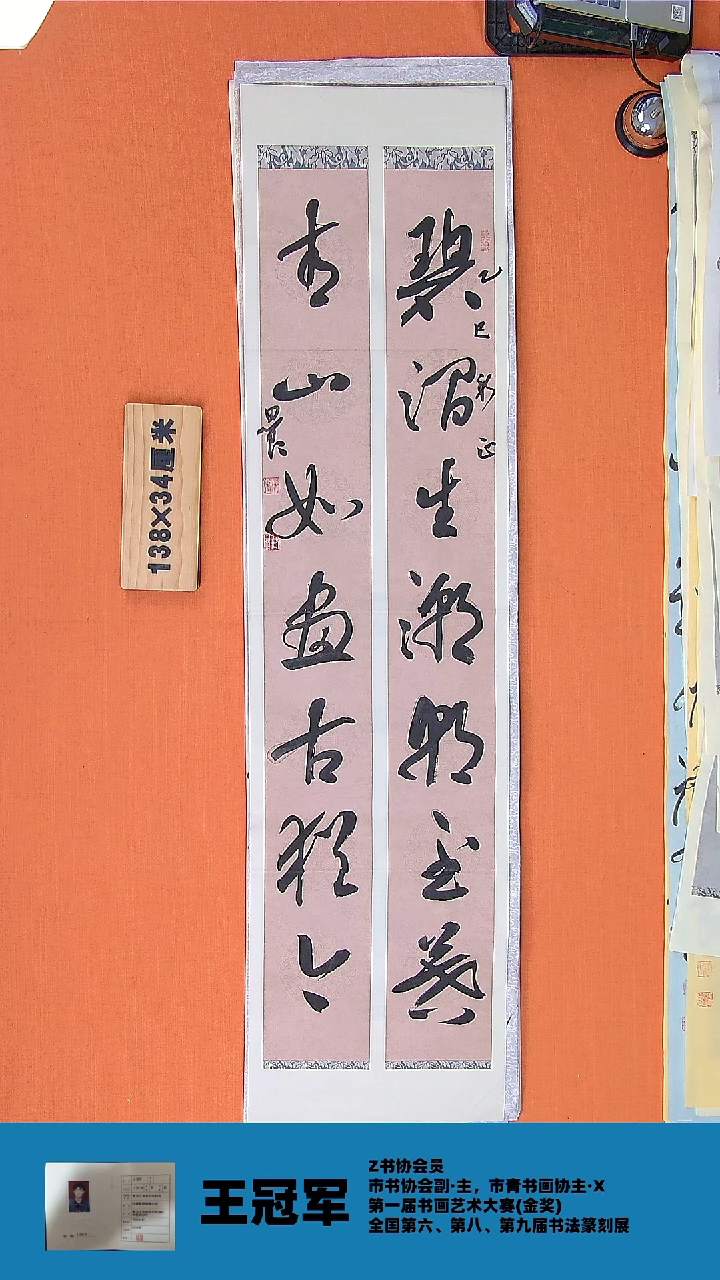 碧澗生潮朝至暮
乙巳新正
青山如画古猶今
138×34厘米
王冠军
Z书协会员
市书协会副·主，市青书画协主·X
第一届书画艺术大赛(金奖)
全国第六、第八、第九届书法篆刻展